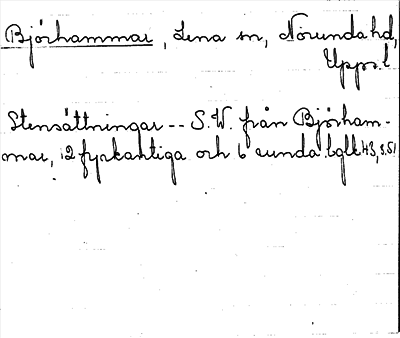 Björhammar, Lena sn, Norunda hd,
Upps. l.
Stensättningar -- S.W. från Björham-
mar, 12 fyrkantiga och 6 runda. bglk H3, s. 51